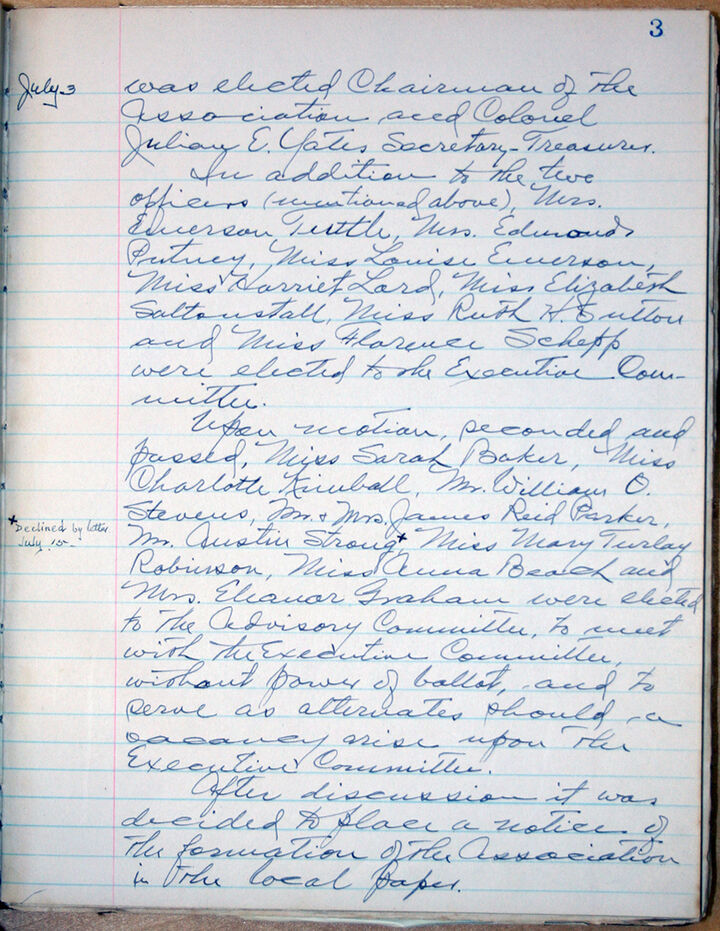 3
July 3
was elected Chairman of the
Association and Colonel
Julian E. Yates Secretary-Treasurer.
In addition to the two
officers (mentioned above), Mrs.
Emerson Tuttle, Mrs. Edmonds
Putney, Miss Louise Emerson,
Miss Harriet Lord, Miss Elizabeth
Saltonstall, Miss Ruth H. Sutton
and Miss Florence Schepp
were elected to the Executive Com-
mittee.
Upon motion, seconded and
passed, Miss Sarah Baker, Miss
Charlotte Kimball, Mr. William O.
Stevens, Mr. & Mrs. James Reid Parker,
+Declined by letter
July 15-
Mr. Austin Strong+, Miss Mary Turlay
Robinson, Miss Anna Beach and
Mrs. Eleanor Graham were elected
to the Advisory Committee, to meet
with the Executive Committee,
without power of ballot, and to
serve as alternates should a
vacancy arise upon the
Executive Committee.
After discussion it was
decided to place a notice of
the formation of the Association
in the local paper.